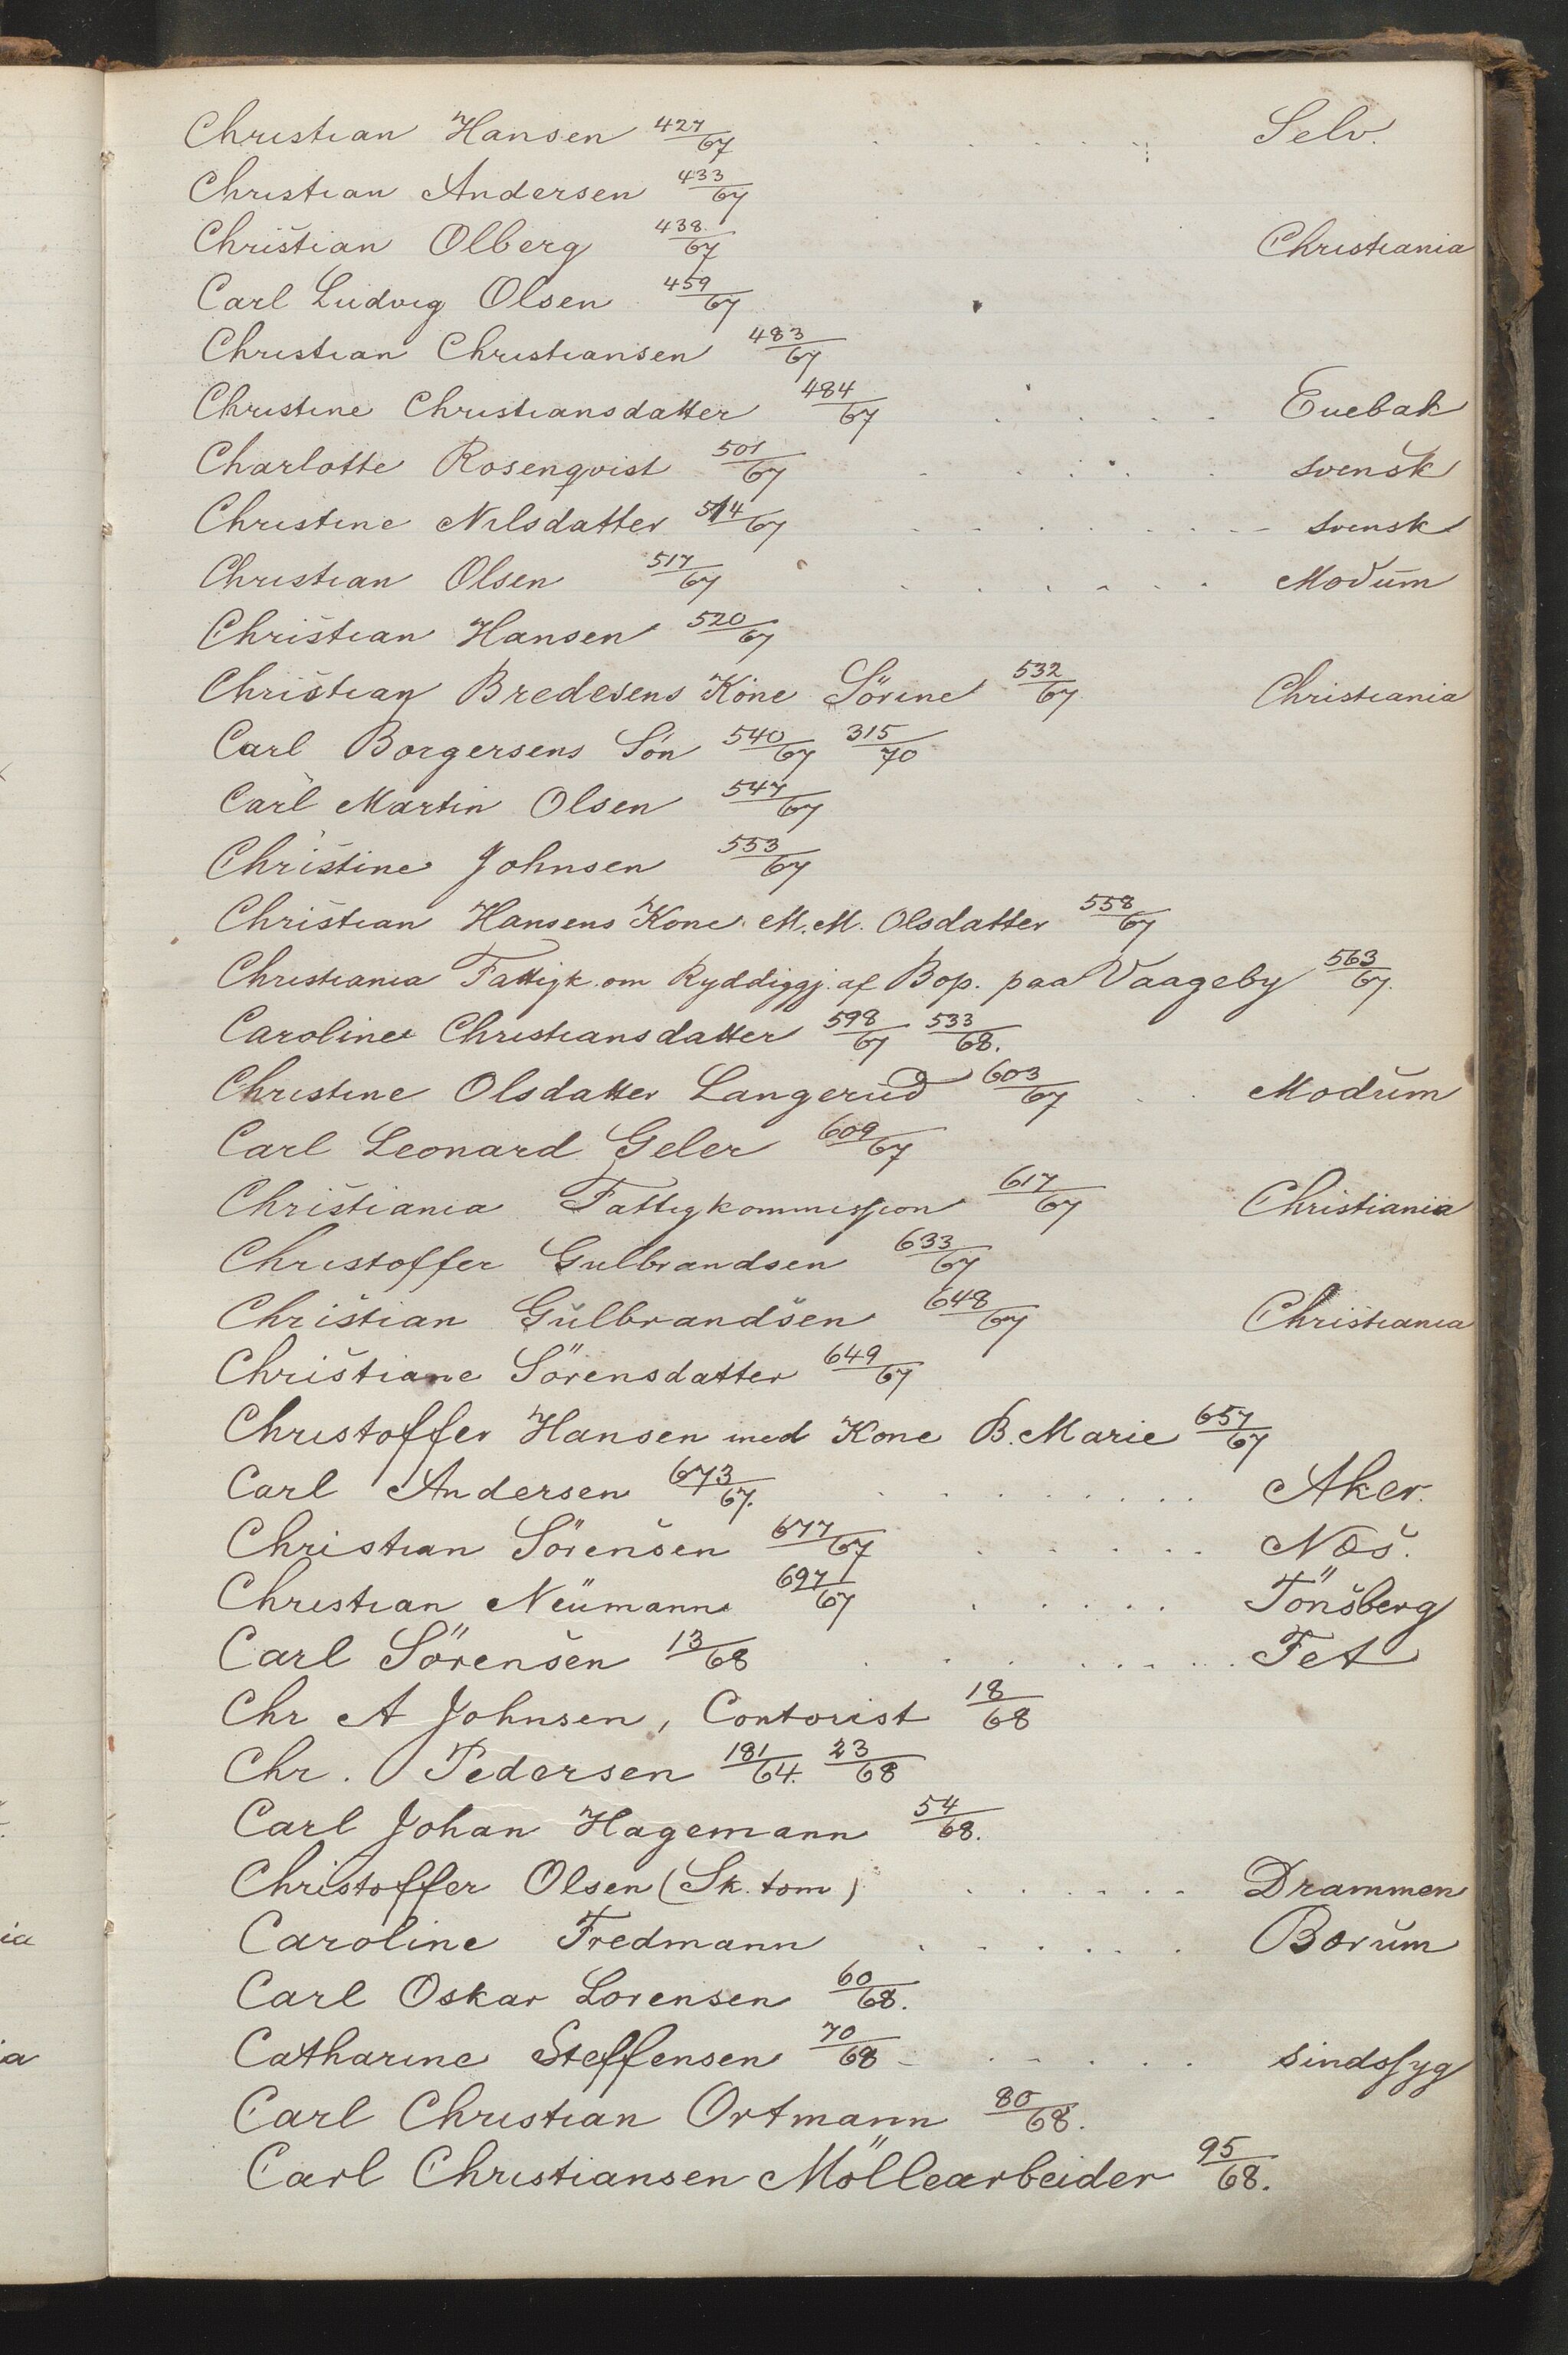 Christian Hansen 427/67 . . . . . Selv.
Christian Andersen 433/67
Christian Olberg 438/67 Christiania
Carl Ludvig Olsen 459/67
Christian Christiansen 483/67
Christine Christiansdatter 484/67 . . . . Enebak
Charlotte Rosenqvist 501/67 . . . . svensk
Christine Nilsdatter 514/67 . . . . . . svensk
Christian Olsen 517/67 . . . . . . Modum
Christian Hansen 520/67
Christian Bredesens Kone Sörine 532/67 Christiania
Carl Borgersens Sön 540/67 315/70
Carl Martin Olsen 547/67
Christine Johnsen 553/67
Christian Hansens Kone M.M. Olsdatter 558/67
Christiania Fattigk. om Ryddiggj. af Bop. paa Vaageby 563/67.
Caroline Christiansdatter 598/67 533/68.
Christine Olsdatter Langerud 603/67 . . Modum
Carl Leonard Geler 609/67
Christiania Fattigkommission 617/67 Christiania
Christoffer Gulbrandsen 633/67
Christian Gulbrandsen 648/67 Christiania
Christiane Sörensdatter 649/67
Christoffer Hansen med Kone B. Marie 657/67
Carl Andersen 673/67. . . . . . . . . Aker.
Christian Sörensen 677/67 . . . . . Næs.
Christian Neumann 697/67 . . . . . Tönsberg
Carl Sörensen 13/68 . . . . . . . Fet
Chr A Johnsen, Contorist 18/68
Chr. Pedersen 181/64. 23/68
Carl Johan Hagemann 54/68.
Christoffer Olsen (Sk. tom) . . . . . . Drammen
Caroline Fredmann . . . . . . Bærum
Carl Oskar Lorensen 60/68.
Catharine Steffensen 70/68 . . . . . sindssyg
Carl Christian Ortmann 80/68.
Carl Christiansen Möllearbeider 95/68.
ia
ia